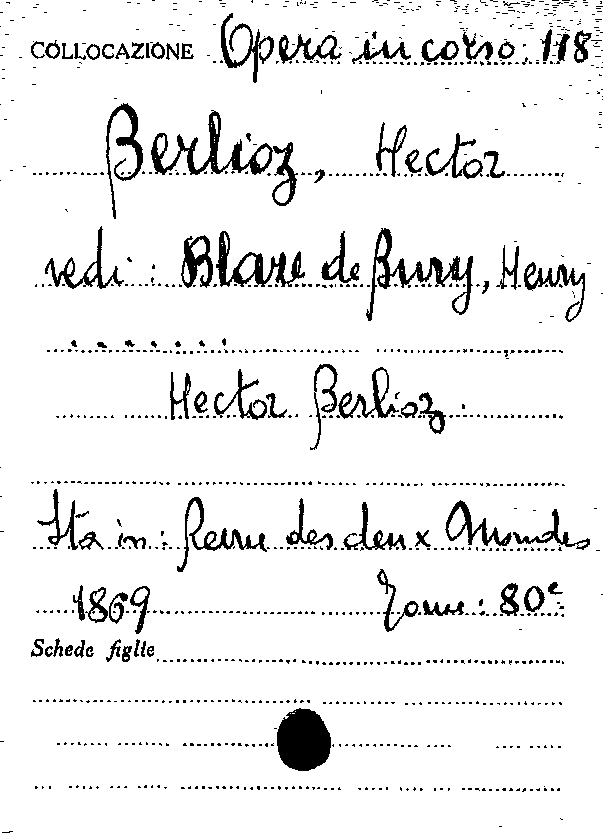 COLLOCAZIONE Opera in corso: 118
Berlioz, Hector
vedi: Blaze de Bury, Henry
.......
Hector Berlioz.
Sta in: Revue des deux Mondes
1869 Tome: 80e
Schede figlie